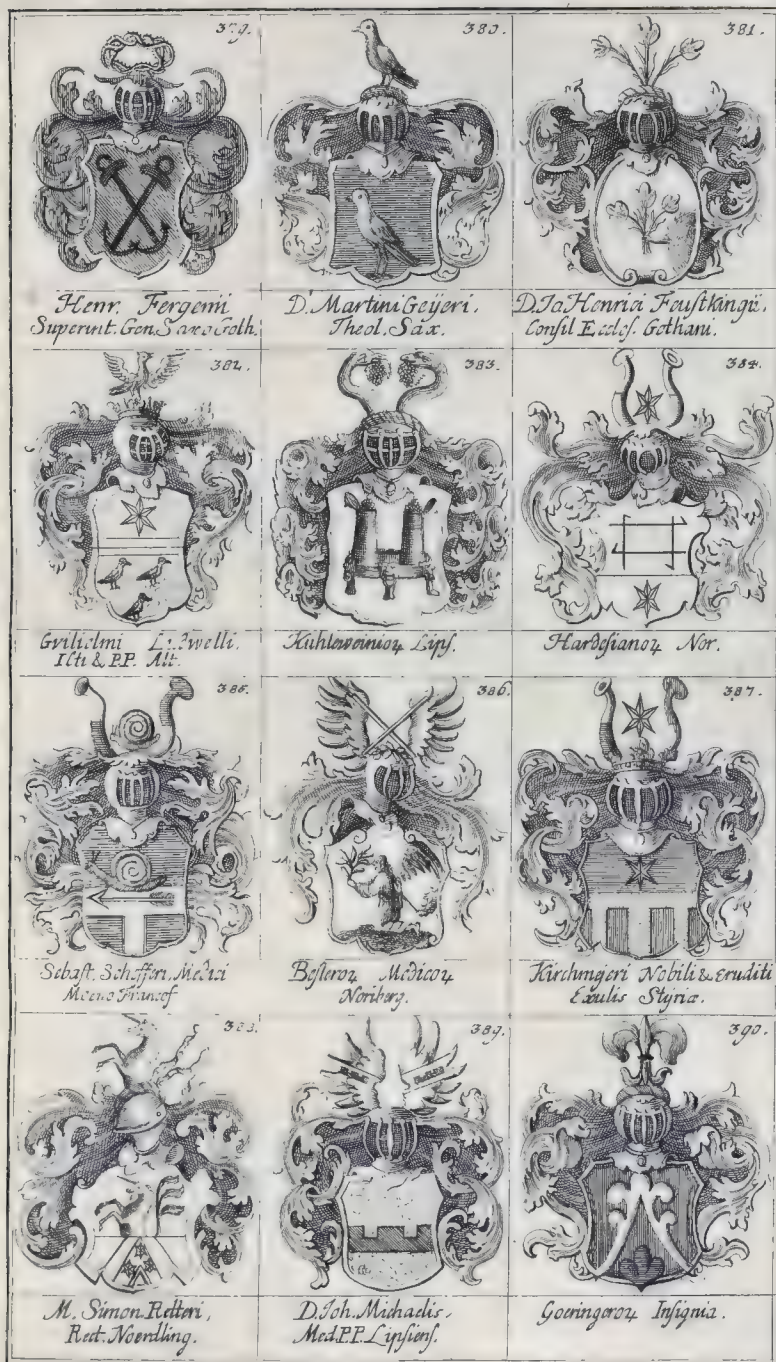 379.
380.
381.
Henr. Fergenii
Superint. Gen. Saxo Goth.
D. Martini Geijeri.
Theol. Sax.
D. Jo Henrici Feustkingii.
Consil Eccles. Gothani.
382.
383.
384.
Gvilielmi
Icti & P.P. Alt.
Kuhleweinioꝝ Lips.
Hardesianoꝝ Nor.
385.
386.
387.
Sebast. Schefferi. Medici
Moeno Francof
Besleroꝝ Medicoꝝ
Noriberg.
Kirchmejeri Nobili & eruditi
Exulis Styriæ.
388.
389.
390.
M. Simon Retteri,
Rect. Noerdling.
D. Joh. Michaelis.
Med. P.P. Lipsiens.
Goeringeroꝝ Insignia.